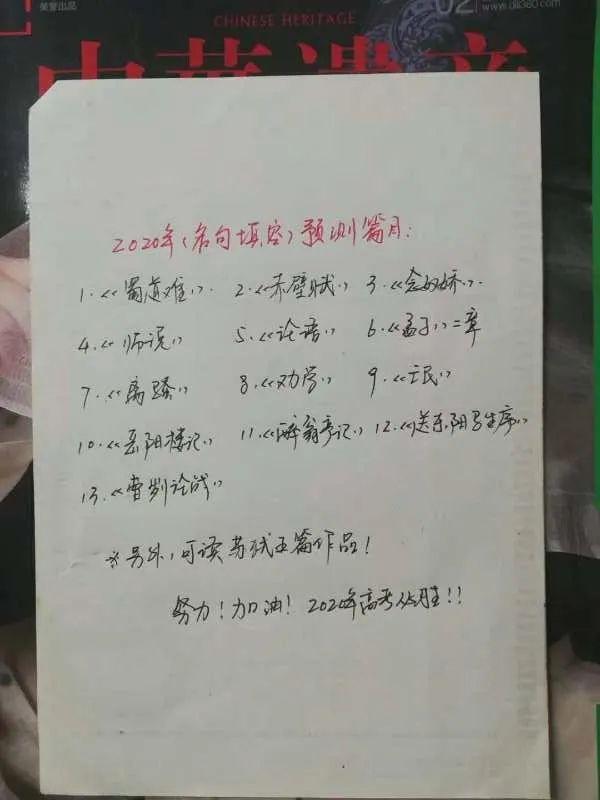 荣誉出品
CHINESE HERITAGE
02
www.dili360.com
中華遺産
2020年(名句填空)预测篇目:
1.《蜀道难》. 2.《赤壁赋》 3.《念奴娇》.
4.《师说》 5.《论语》 6.《孟子》二章
7.《离骚》 8.《劝学》 9.《氓》
10.《岳阳楼记》 11.《醉翁亭记》 12.《送东阳马生序》
13.《曹刿论战》
※另外,可读苏轼五篇作品!
努力!加油!2020年高考必胜!!